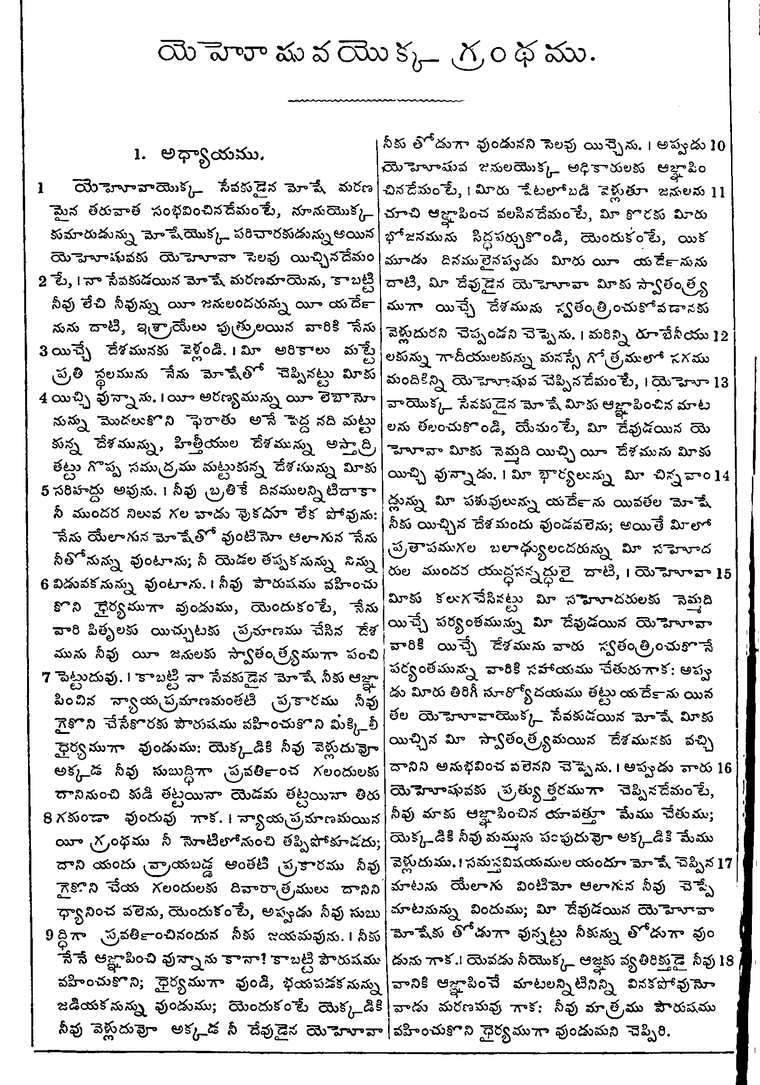 యెహోషువయొక్క గ్రంథము.
1. అధ్యాయము.
1 యెహోవాయొక్క సేవకుడైన మోషే మరణ
మైన తరువాత సంభవించినదేమంటే, నూనుయొక్క
కుమారుడున్ను మోషేయొక్క పరిచారకుడున్ను అయిన
యెహోషువకు యెహోవా సెలవు యిచ్చినదేమం
2 టే, । నా సేవకుడయిన మోషే మరణమాయెను, కాబట్టి
నీవు లేచి నీవున్ను యీ జనులందరున్ను యీ యర్దే
నును దాటి, ఇశ్రాయేలు పుత్రులయిన వారికి నేను
3 యిచ్చే దేశమునకు వెళ్లండి. । మీ అరికాలు మట్టే
ప్రతి స్థలమును నేను మోషేతో చెప్పినట్టు మీకు
4 యిచ్చి వున్నాను. । యీ అరణ్యమున్ను యీ లెబానో
నున్ను మొదలుకొని ఫెరాతు అనే పెద్ద నది మట్టు
కున్న దేశమున్ను, హిత్తీయుల దేశమున్ను అస్తాద్రి
తట్టు గొప్ప సముద్రము మట్టుకున్న దేశమున్ను మీకు
5 సరిహద్దు అవును. । నీవు బ్రతికే దినములన్నిటిదాకా
నీ ముందర నిలువ గల వాడు వొకడూ లేక పోవును:
నేను యేలాగున మోషేతో వుంటినో ఆలాగున నేను
నీతోనున్ను వుంటాను; నీ యెడల తప్పకనున్ను నిన్ను
6 విడువకనున్ను వుంటాను. । నీవు పౌరుషము వహించు
కొని ధైర్యముగా వుండుము, యెందుకంటే, నేను
వారి పితృలకు యిచ్చుటకు ప్రమాణము చేసిన దేశ
మును నీవు యీ జనులకు స్వాతంత్ర్యముగా పంచి
7 పెట్టుదువు. । కాబట్టి నా సేవకుడైన మోషే నీకు ఆజ్ఞా
పించిన న్యాయప్రమాణమంతటి ప్రకారము నీవు
గైకొని చేసేకొరకు పౌరుషము వహించుకొని మిక్కిలీ
ధైర్యముగా వుండుము: యెక్కడికి నీవు వెళ్లుదువో
అక్కడ నీవు సుబుద్ధిగా ప్రవర్తించ గలందులకు
దానినుంచి కుడి తట్టయినా యెడమ తట్టయినా తిరు
8 గకుండా వుందువు గాక. । న్యాయప్రమాణమయిన
యీ గ్రంథము నీ నోటిలోనుంచి తప్పిపోకూడదు;
దాని యందు వ్రాయబడ్డ అంతటి ప్రకారము నీవు
గైకొని చేయ గలందులకు దివారాత్రములు దానిని
ధ్యానించ వలెను, యెందుకంటే, అప్పుడు నీవు సుబు
9 ద్ధిగా ప్రవర్తించినందున నీకు జయమవును. । నీకు
నేనే ఆజ్ఞాపించి వున్నాను కానా? కాబట్టి పౌరుషము
వహించుకొని; ధైర్యముగా వుండి, భయపడకనున్ను
జడియకనున్ను వుండుము; యెందుకంటే యెక్కడికి
నీవు వెళ్లుదువో అక్కడ నీ దేవుడైన యెహోవా
నీకు తోడుగా వుండునని సెలవు యిచ్చెను. । అప్పుడు 10
యెహోషువ జనులయొక్క అధికారులకు ఆజ్ఞాపిం
చినదేమంటే, । మీరు పేటలోబడి వెళ్లుతూ జనులను 11
చూచి ఆజ్ఞాపించ వలసినదేమంటే, మీ కొరకు మీరు
భోజనమును సిద్ధపర్చుకొండి, యెందుకంటే, యిక
మూడు దినములైనప్పుడు మీరు యీ యర్దేనును
దాటి, మీ దేవుడైన యెహోవా మీకు స్వాతంత్ర్య
ముగా యిచ్చే దేశమును స్వతంత్రించుకోవడానకు
వెళ్లుదురని చెప్పండని చెప్పెను. । మరిన్ని రూబేనీయు 12
లకున్ను గాదీయులకున్ను మనస్సే గోత్రములో సగము
మందికిన్ని యెహోషువ చెప్పినదేమంటే, । యెహో 13
వాయొక్క సేవకుడైన మోషే మీకు ఆజ్ఞాపించిన మాట
లను తలంచుకొండి, యేమంటే, మీ దేవుడయిన యె
హోవా మీకు నెమ్మది యిచ్చి యీ దేశమును మీకు
యిచ్చి వున్నాడు. । మీ భార్యలున్ను మీ చిన్నవాం 14
డ్లున్ను మీ పశువులున్ను యర్దేను యివతల మోషే
నీకు యిచ్చిన దేశమందు వుండవలెను; అయితే మీలో
ప్రతాపముగల బలాఢ్యులందరున్ను మీ సహోద
రుల ముందర యుద్ధసన్నద్ధులై దాటి, । యెహోవా 15
మీకు కలుగచేసినట్టు మీ సహోదరులకు నెమ్మది
యిచ్చే పర్యంతమున్ను మీ దేవుడయిన యెహోవా
వారికి యిచ్చే దేశమును వారు స్వతంత్రించుకొనే
పర్యంతమున్ను వారికి సహాయము చేతురుగాక: అప్పు
డు మీరు తిరిగీ సూర్యోదయము తట్టు యర్దేను యిన
తల యెహోవాయొక్క సేవకుడయిన మోషే మీకు
యిచ్చిన మీ స్వాతంత్ర్యమయిన దేశమునకు వచ్చి
దానిని అనుభవించ వలెనని చెప్పెను. । అప్పుడు వారు 16
యెహోషువకు ప్రత్యుత్తరముగా చెప్పినదేమంటే,
నీవు మాకు ఆజ్ఞాపించిన యావత్తూ మేము చేతుము;
యెక్కడికి నీవు మమ్మును పంపుదువో అక్కడికి మేము
వెళ్లుదుము. । సమస్తవిషయముల యందూ మోషే చెప్పిన 17
మాటను యేలాగు వింటిమో ఆలాగున నీవు చెప్పే
మాటనున్ను విందుము; మీ దేవుడయిన యెహోవా
మోషేకు తోడుగా వున్నట్టు నీకున్ను తోడుగా వుం
డును గాక. । యెవడు నీయొక్క ఆజ్ఞకు వ్యతిరిక్తుడై నీవు 18
వానికి ఆజ్ఞాపించే మాటలన్నిటినిన్ని వినకపోవునో
వాడు మరణమవు గాక: నీవు మాత్రము పౌరుషము
వహించుకొని ధైర్యముగా వుండుమని చెప్పిరి.